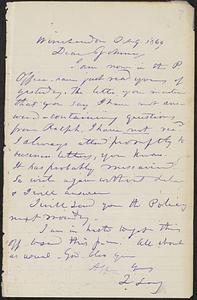 Winchendon Aug. 1869
Dear
I am now in the P
Office. have just read yours of
yesterday. The letter you mention
that you say I have not ans-
wered - containing questions
from Ralph, I have not rec'd
I always attend promptly to
business letters, you know.
It has probably miscarried
So write again without delay
& I will answer
I will send you the Policy
next Monday.
I am in haste to get this
off. All about
as usual. God bless you
Yours